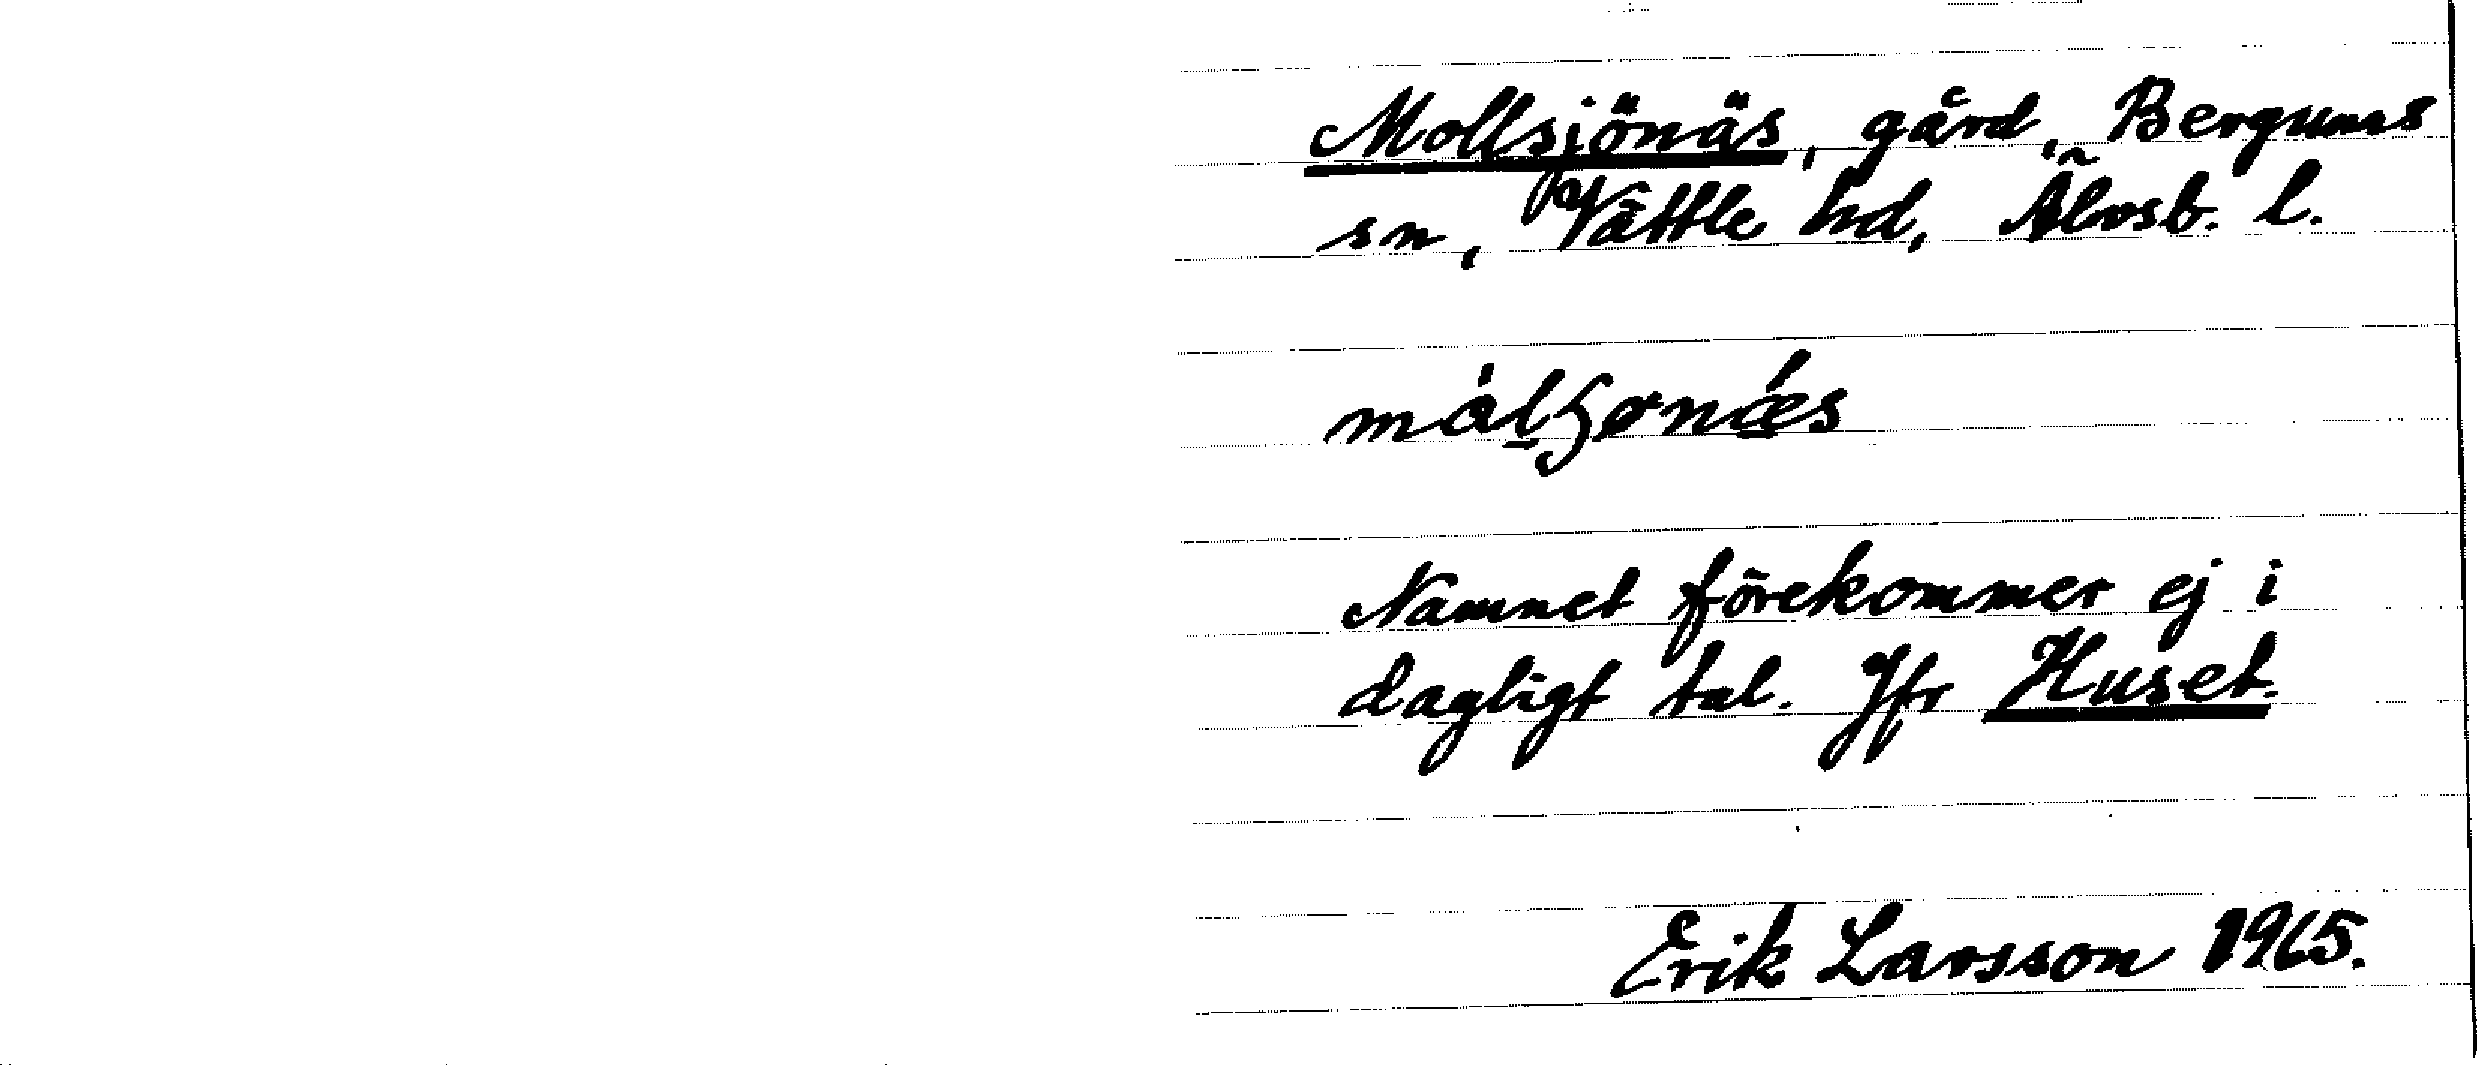 Mollsjönäs, gård, Bergums
sn, Vättle hd, Älvsb. l.
Namnet förekommer ej i
dagligt tal. Jfr Huset.
Erik Larsson 1965.